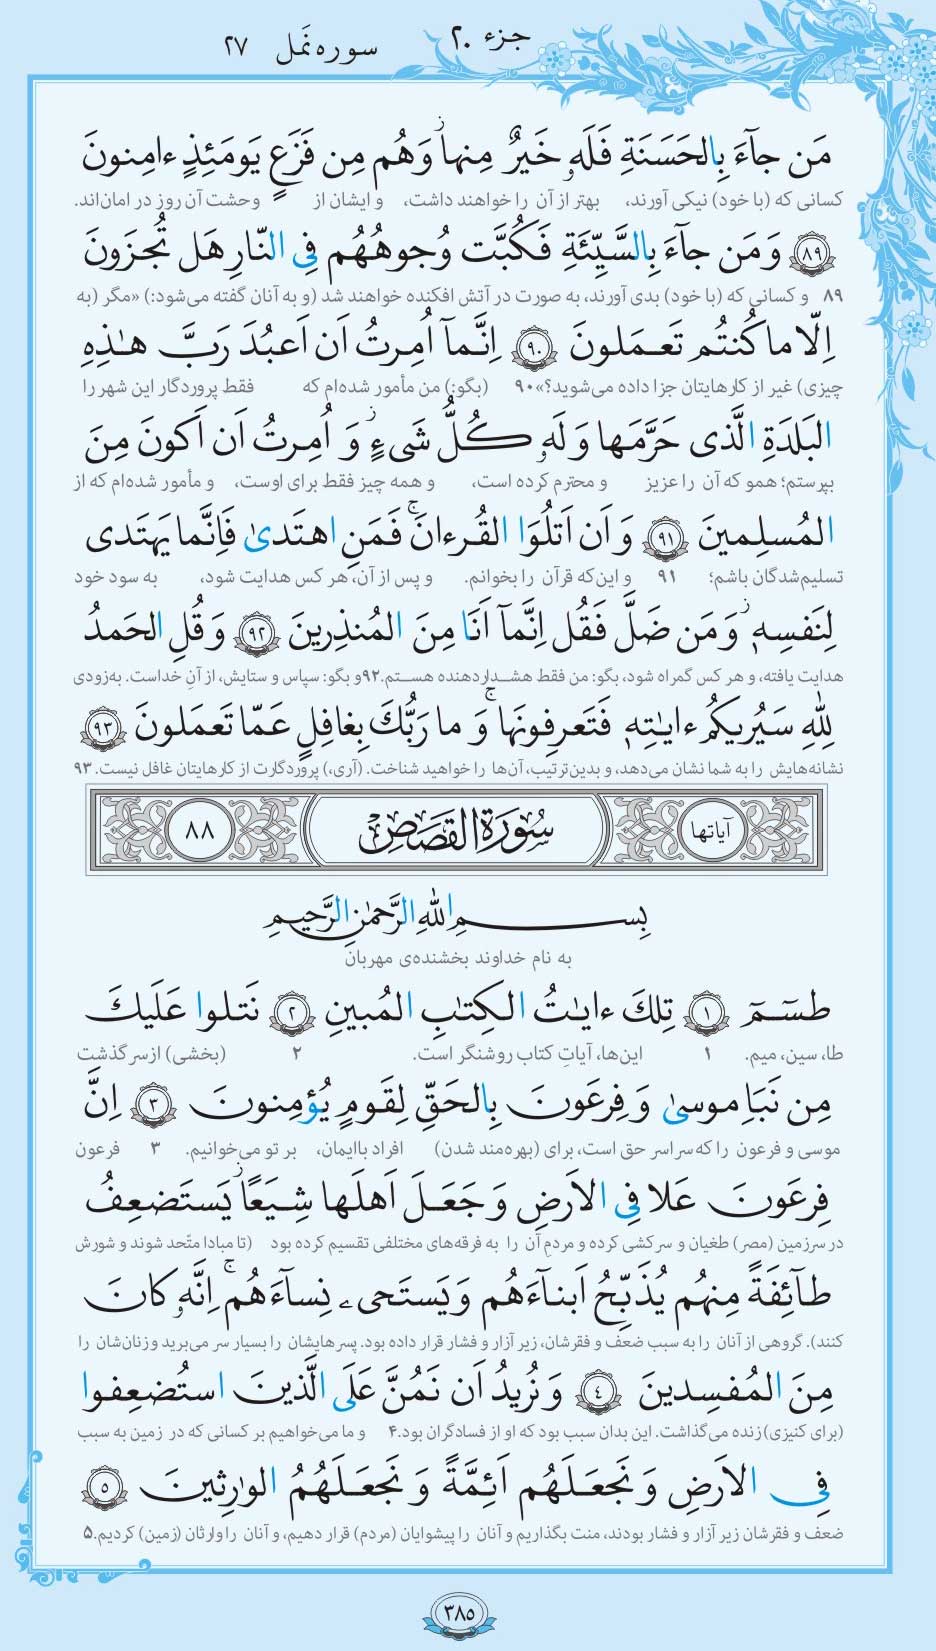 جزء ۲۰
سوره نَمل ۲۷
مَن جآءَ بِالحَسَنَةِ فَلَهٗ خَيرٌ مِنها ۚ وَهُم مِن فَزَعٍ يَومَئِذٍ ءامِنونَ
کسانی که (با خود) نیکی آورند، بهتر از آن را خواهند داشت، و ایشان از وحشت آن روز در امان‌اند.
﴿٨٩﴾ وَمَن جآءَ بِالسَّيِّئَةِ فَكُبَّت وُجوهُهُم فِی النّارِ هَل تُجزَونَ
۸۹ و کسانی که (با خود) بدی آورند، به صورت در آتش افکنده خواهند شد (و به آنان گفته می‌شود:) «مگر (به
اِلّا ما كُنتُم تَعمَلونَ ﴿٩٠﴾ اِنَّمآ اُمِرتُ اَن اَعبُدَ رَبَّ هٰذِهِ
چیزی) غیر از کارهایتان جزا داده می‌شوید؟» ۹۰ (بگو:) من مأمور شده‌ام که فقط پروردگار این شهر را
البَلدَةِ الَّذی حَرَّمَها وَ لَهٗ كُلُّ شَیءٍ ز وَ اُمِرتُ اَن اَكونَ مِنَ
بپرستم؛ همو که آن را عزیز و محترم کرده است، و همه چیز فقط برای اوست، و مأمور شده‌ام که از
المُسلِمينَ ﴿٩١﴾ وَ اَن اَتلُوَا القُرءانَ ۚ فَمَنِ اهتَدیٰ فَاِنَّما يَهتَدی
تسلیم‌شدگان باشم؛ ۹۱ و این‌که قرآن را بخوانم. و پس از آن، هر کس هدایت شود، به سود خود
لِنَفسِهٖ ز وَ مَن ضَلَّ فَقُل اِنَّمآ اَنَا مِنَ المُنذِرينَ ﴿٩٢﴾ وَ قُلِ الحَمدُ
هدایت یافته، و هر کس گمراه شود، بگو: من فقط هشداردهنده هستم. ۹۲ و بگو: سپاس و ستایش، از آنِ خداست. به‌زودی
لِلّٰهِ سَيُريكُم ءايٰتِهٖ فَتَعرِفونَها ۚ وَ ما رَبُّكَ بِغافِلٍ عَمّا تَعمَلونَ ﴿٩٣﴾
نشانه‌هایش را به شما نشان می‌دهد، و بدین‌ترتیب، آن‌ها را خواهید شناخت. (آری،) پروردگارت از کارهایتان غافل نیست. ۹۳
آیاتها سُورَةُ القَصَصِ ٨٨
بِسمِ اللّٰهِ الرَّحمٰنِ الرَّحيمِ
به نام خداوند بخشنده‌ی مهربان
طسٓمٓ ﴿١﴾ تِلكَ ءايٰتُ الكِتٰبِ المُبينِ ﴿٢﴾ نَتلوا عَلَيكَ
طا، سین، میم. ۱ این‌ها، آیاتِ کتاب روشنگر است. ۲ (بخشی) از سرگذشت
مِن نَبَاِ موسیٰ وَ فِرعَونَ بِالحَقِّ لِقَومٍ يُؤمِنونَ ﴿٣﴾ اِنَّ
موسی و فرعون را که سراسر حق است، برای (بهره‌مند شدن) افراد باایمان، بر تو می‌خوانیم. ۳ فرعون
فِرعَونَ عَلا فِی الاَرضِ وَ جَعَلَ اَهلَها شِيَعًا ز يَستَضعِفُ
در سرزمین (مصر) طغیان و سرکشی کرده و مردم آن را به فرقه‌های مختلفی تقسیم کرده بود (تا مبادا متّحد شوند و شورش
طآئِفَةً مِنهُم يُذَبِّحُ اَبنآءَهُم وَيَستَحیی نِسآءَهُم ۚ اِنَّهٗ كانَ
کنند). گروهی از آنان را به سبب ضعف و فقرشان، زیر آزار و فشار قرار داده بود. پسرهایشان را بسیار سر می‌برید و زنان‌شان را
مِنَ المُفسِدينَ ﴿٤﴾ وَ نُريدُ اَن نَمُنَّ عَلَی الَّذينَ استُضعِفوا
(برای کنیزی) زنده می‌گذاشت. این بدان سبب بود که او از فسادگران بود. ۴ و ما می‌خواهیم بر کسانی که در زمین به سبب
فِی الاَرضِ وَ نَجعَلَهُم اَئِمَّةً وَ نَجعَلَهُمُ الوارِثينَ ﴿٥﴾
ضعف و فقرشان زیر آزار و فشار بودند، منت بگذاریم و آنان را پیشوایان (مردم) قرار دهیم، و آنان را وارثان (زمین) کردیم. ۵
۳۸۵